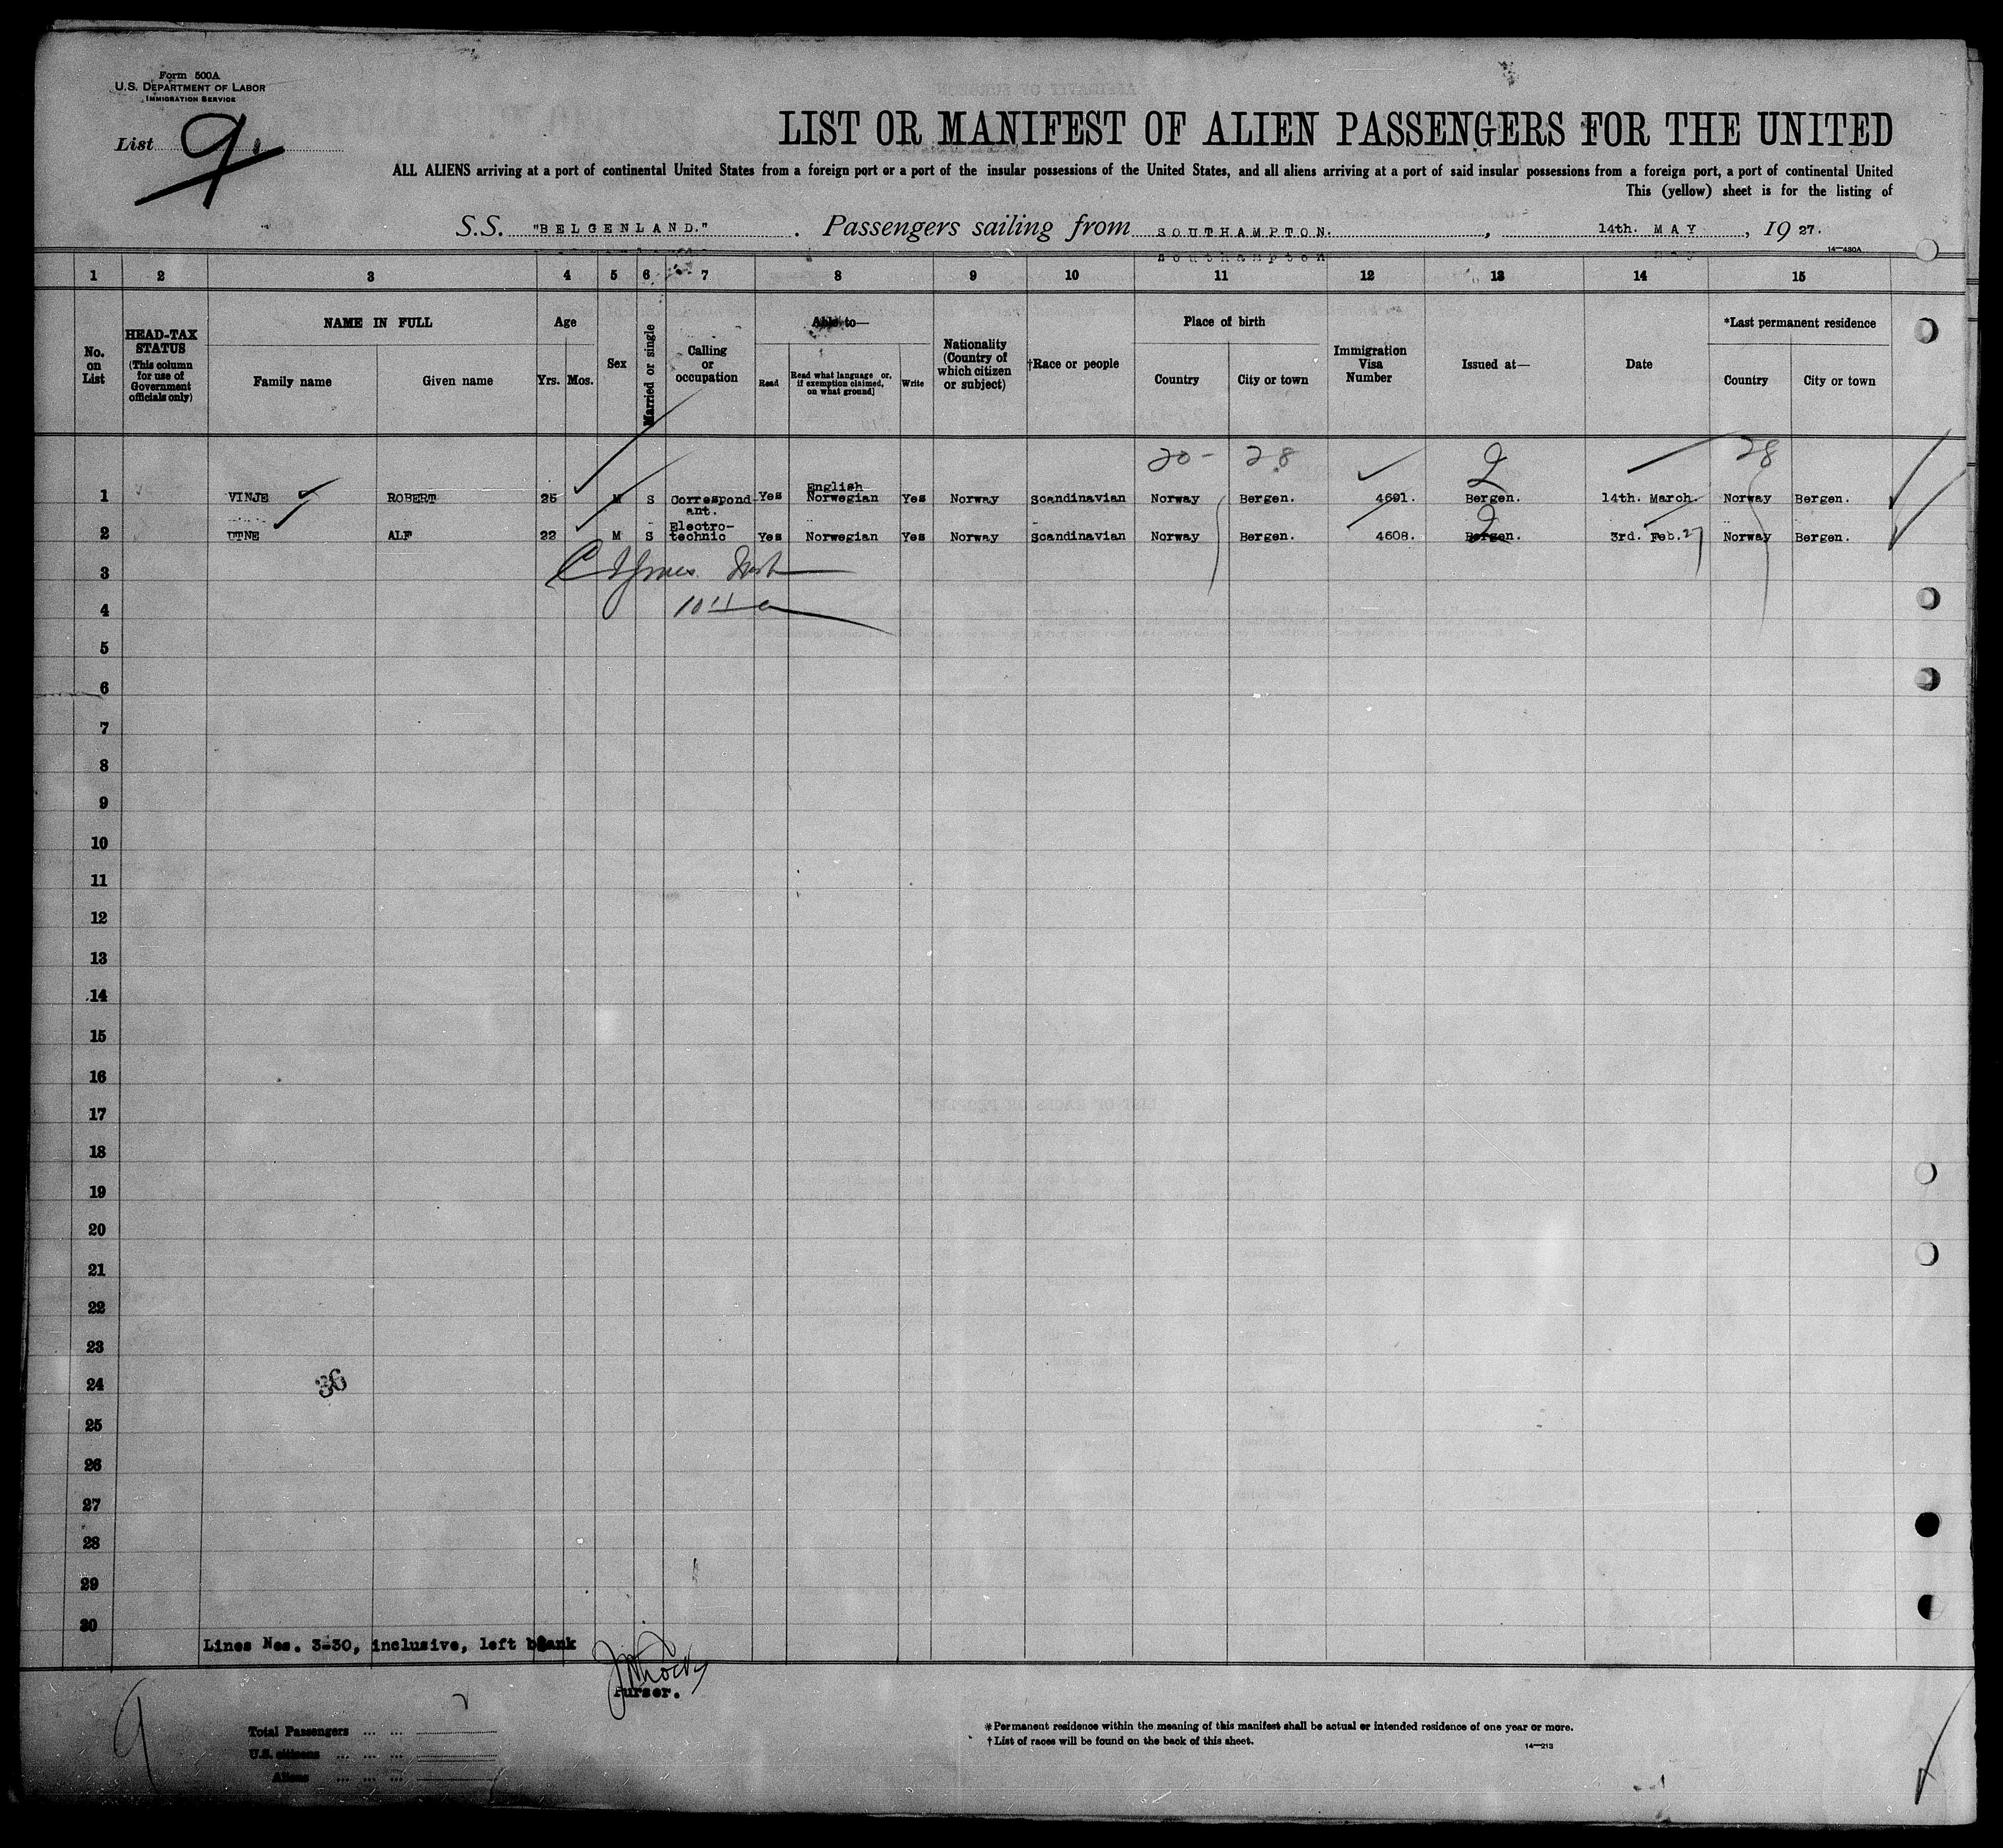 Form 500A
U.S. DEPARTMENT OF LABOR
IMMIGRATION SERVICE
List 9.
LIST OR MANIFEST OF ALIEN PASSENGERS FOR THE UNITED
ALL ALIENS arriving at a port of continental United States from a foreign port or a port of the insular possessions of the United States, and all aliens arriving at a port of said insular possessions from a foreign port, a port of continental United
This (yellow) sheet is for the listing of
S.S. "BELGENLAND." . Passengers sailing from SOUTHAMPTON. , 14th. MAY , 19 27.
14—430A
1 2 3 4 5 6 7 8 9 10 11 12 13 14 15
No. on List
HEAD-TAX STATUS (This column for use of Government officials only)
NAME IN FULL
Family name Given name
Age
Yrs. Mos.
Sex
Married or single
Calling or occupation
Able to—
Read Read what language or, if exemption claimed, on what ground] Write
Nationality (Country of which citizen or subject)
†Race or people
Place of birth
Country City or town
Immigration Visa Number
Issued at—
Date
*Last permanent residence
Country City or town
20- 28 2 28
1 VINJE ROBERT 25 M S Correspondant. Yes English Norwegian Yes Norway Scandinavian Norway Bergen. 4691. Bergen. 14th. March. Norway Bergen.
2 UTNE ALF 22 M S Electro-technic Yes Norwegian Yes Norway Scandinavian Norway Bergen. 4608. Bergen. 3rd. Feb.27 Norway Bergen.
3
4
5
6
7
8
9
10
11
12
13
14
15
16
17
18
19
20
21
22
23
24 36
25
26
27
28
29
30
Lines Nos. 3-30, inclusive, left blank
Purser.
9
Total Passengers ... ...
U.S. citizens ... ... ...
Aliens ... ... ...
*Permanent residence within the meaning of this manifest shall be actual or intended residence of one year or more.
†List of races will be found on the back of this sheet.
14—213